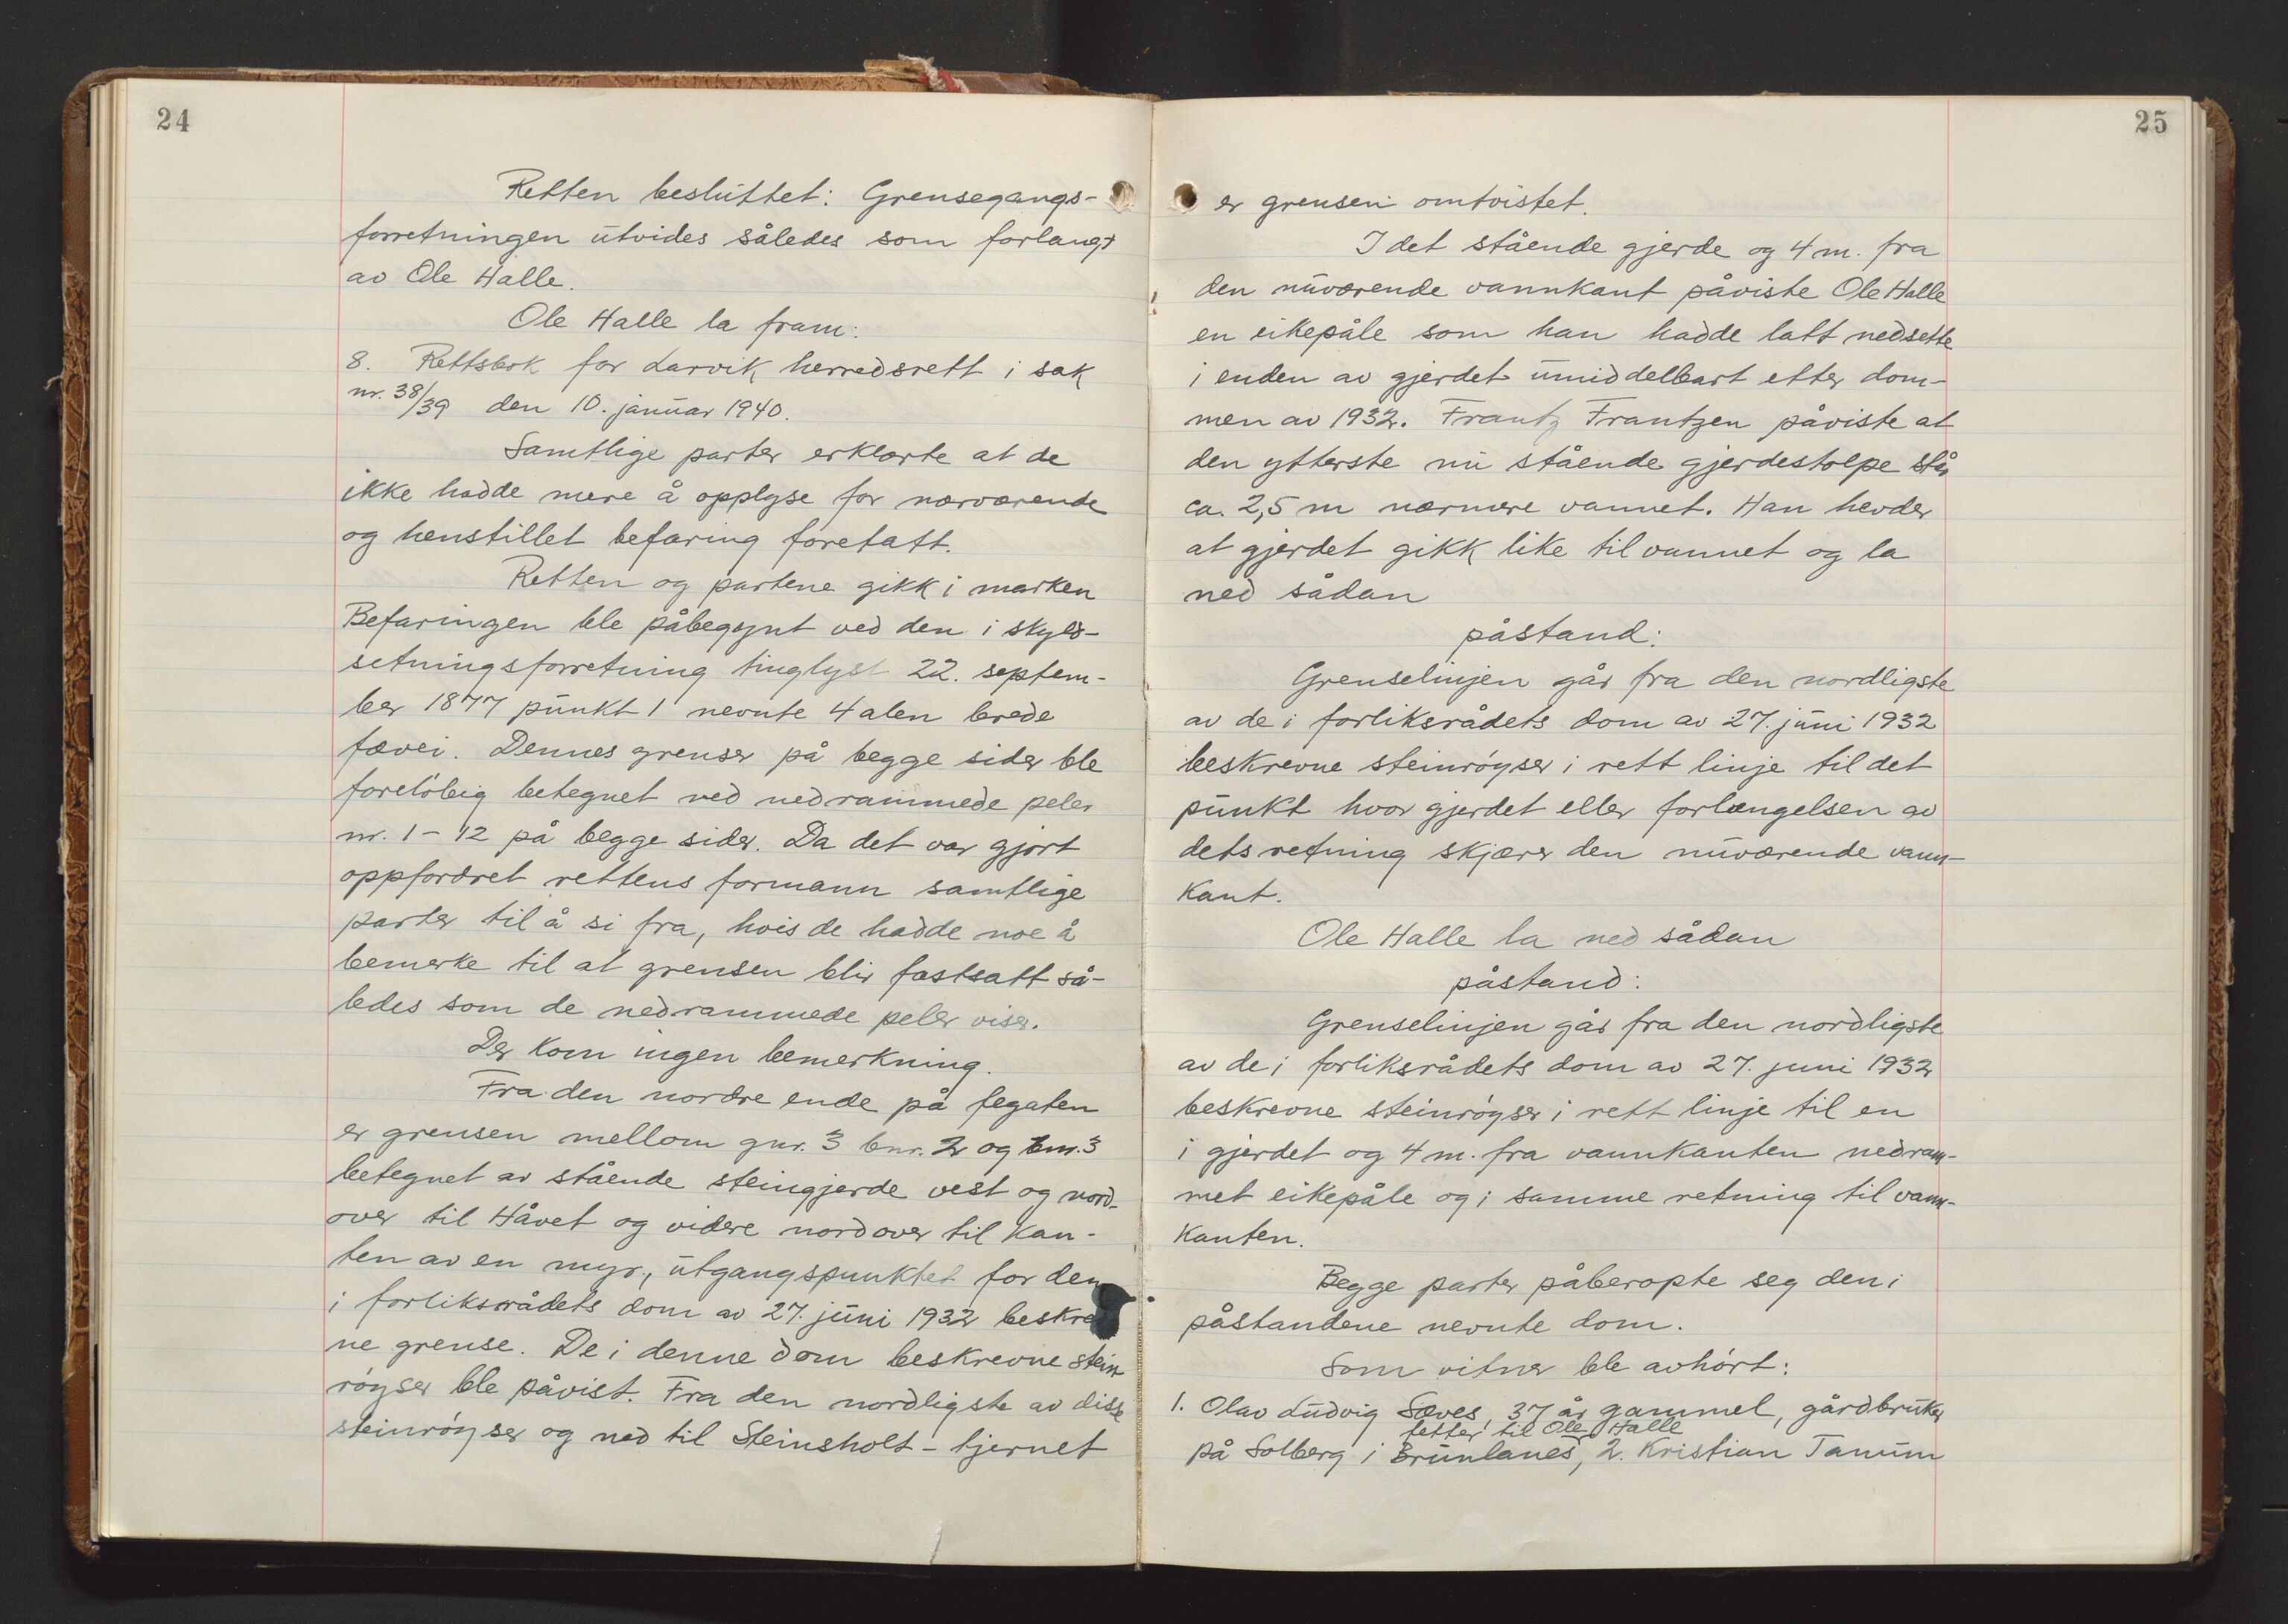 24
Retten besluttet: Grensegangs-
forretningen utvides således som forlangt
av Ole Halle.
Ole Halle la fram:
8. Rettsbok for Larvik herredsrett i sak
nr. 38/39 den 10. januar 1940.
Samtlige parter erklærte at de
ikke hadde mere å opplyse for nærværende
og henstillet befaring foretatt.
Retten og partene gikk i marken
Befaringen ble påbegynt ved den i skyld-
setningsforretning tinglyst 22. septem-
ber 1877 punkt 1 nevnte 4 alen brede
fævei. Dennes grenser på begge sider ble
foreløbig betegnet ved nedrammede peler
nr. 1-12 på begge sider. Da det var gjort
oppfordret rettens formann samtlige
parter til å si fra, hvis de hadde noe å
bemerke til at grensen blir fastsatt så-
ledes som de nedrammede peler viser.
Der kom ingen bemerkning.
Fra den nordre ende på fegaten
er grensen mellom gnr. 3 bnr. 2 og bnr. 3
betegnet av stående steingjerde vest og nord-
over til Håvet og videre nordover til kan-
ten av en myr, utgangspunktet for den
i forliksrådets dom av 27. juni 1932 beskrev
ne grense. De i denne dom beskrevne stein-
røyser ble påvist. Fra den nordligste av disse
steinrøyser og ned til Steinsholt-tjernet
25
er grensen omtvistet.
I det stående gjerde og 4 m. fra
den nuværende vannkant påviste Ole Halle
en eikepåle som han hadde latt nedsette
i enden av gjerdet umiddelbart etter dom-
men av 1932. Frantz Frantzen påviste at
den ytterste nu stående gjerdestolpe står
ca. 2,5 m nærmere vannet. Han hevder
at gjerdet gikk like til vannet og la
ned sådan
påstand:
Grenselinjen går fra den nordligste
av de i forliksrådets dom av 27. juni 1932
beskrevne steinrøyser i rett linje til det
punkt hvor gjerdet eller forlængelsen av
dets retning skjærer den nuværende vann-
kant.
Ole Halle la ned sådan
påstand:
Grenselinjen går fra den nordligste
av de i forliksrådets dom av 27. juni 1932
beskrevne steinrøyser i rett linje til en
i gjerdet og 4 m. fra vannkanten nedram-
met eikepåle og i samme retning til vann-
kanten.
Begge parter påberopte seg den i
påstandene nevnte dom.
Som vitner ble avhørt:
1. Olav Ludvig Sæves, 37 år gammel, gårdbruker
fetter til Ole Halle
på Solberg i Brunlanes, 2. Kristian Tanum